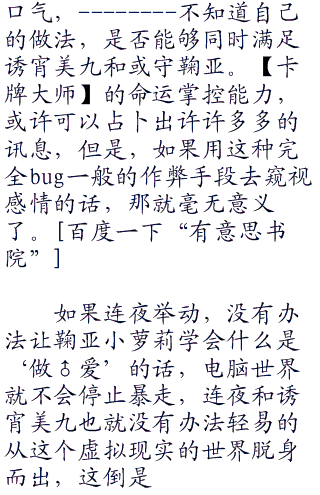 口气，--------不知道自己
的做法，是否能够同时满足
诱宵美九和或守鞠亚。【卡
牌大师】的命运掌控能力，
或许可以占卜出许许多多的
讯息，但是，如果用这种完
全bug一般的作弊手段去窥视
感情的话，那就毫无意义
了。[百度一下“有意思书
院”]
如果连夜举动，没有办
法让鞠亚小萝莉学会什么是
‘做♂爱’的话，电脑世界
就不会停止暴走，连夜和诱
宵美九也就没有办法轻易的
从这个虚拟现实的世界脱身
而出，这倒是